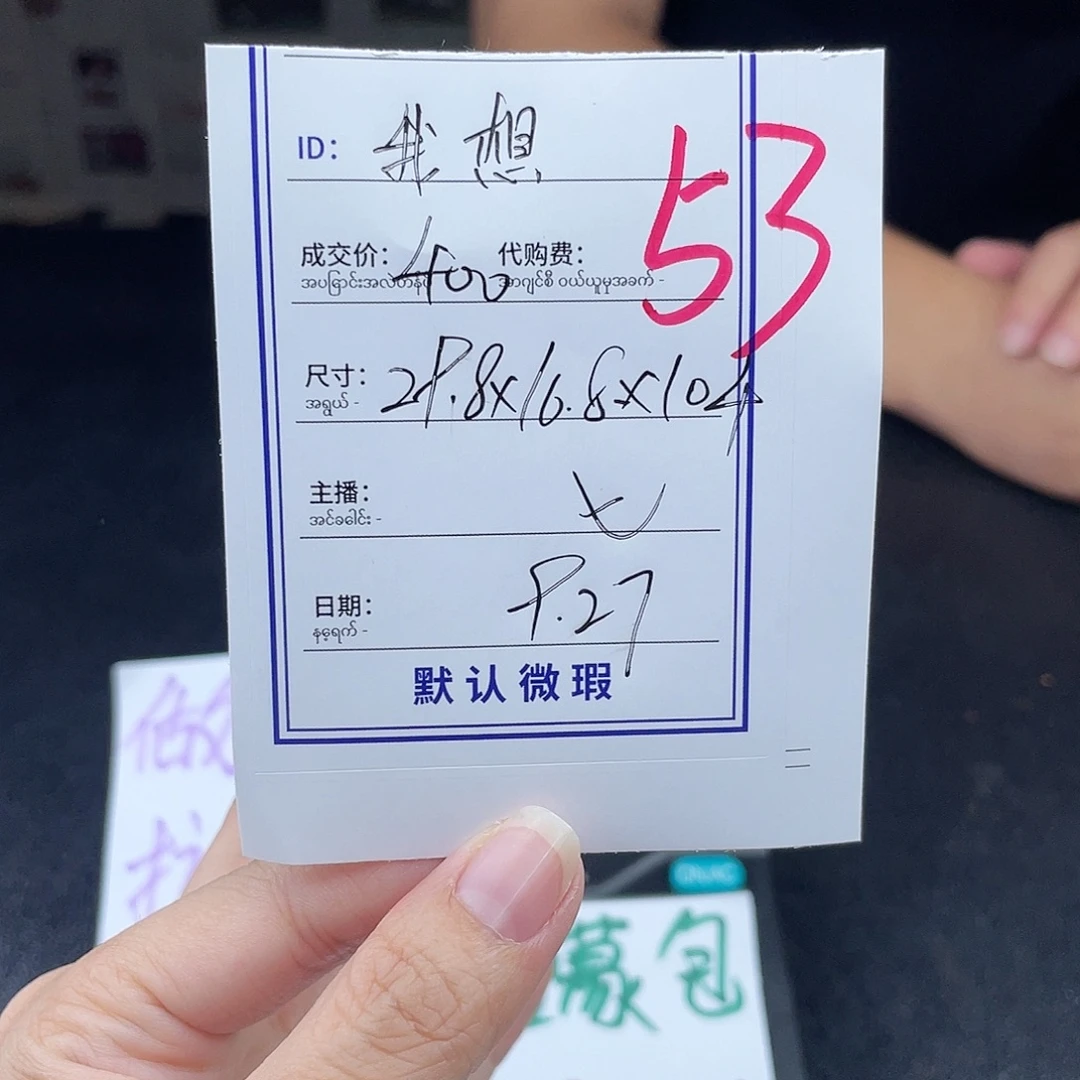 ID: 我想
53
成交价: 400 代购费:
အပြောင်းအလဲတန်ဖိုး အာဂျင်စီ ဝယ်ယူမှုအခက် -
尺寸: 29.8x16.8x10.4
အရွယ် -
主播: 七
အင်ခေါင်း -
日期: 9.27
နေ့ရက် -
默认微瑕
蒙包